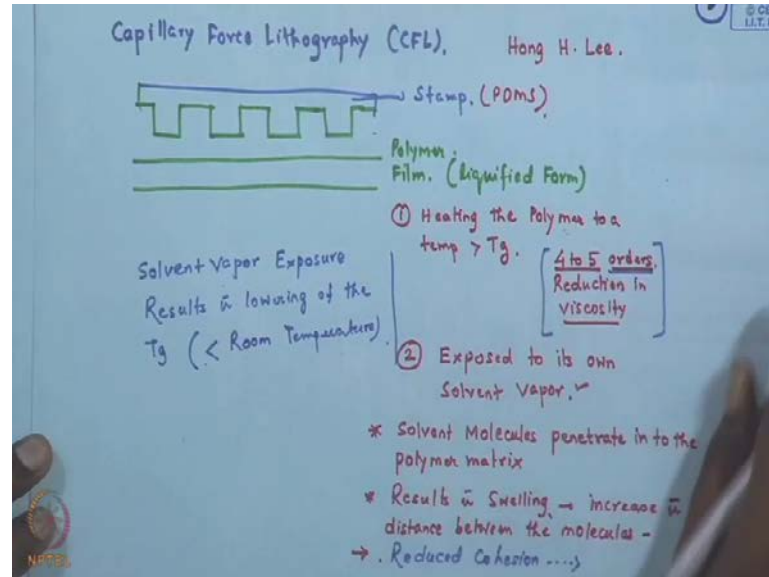 Capillary Force Lithography (CFL). Hong H. Lee.
Stamp. (PDMS)
Polymer
Film. (Liquified Form)
① Heating the Polymer to a
temp > Tg.
4 to 5 orders.
Reduction in
Viscosity
Solvent Vapor Exposure
Results in lowering of the
Tg (< Room Temperature)
② Exposed to its own
Solvent Vapor.
* Solvent Molecules penetrate in to the
polymer matrix
* Results in Swelling → increase in
distance between the molecules -
→ . Reduced Cohesion ....>
NPTEL